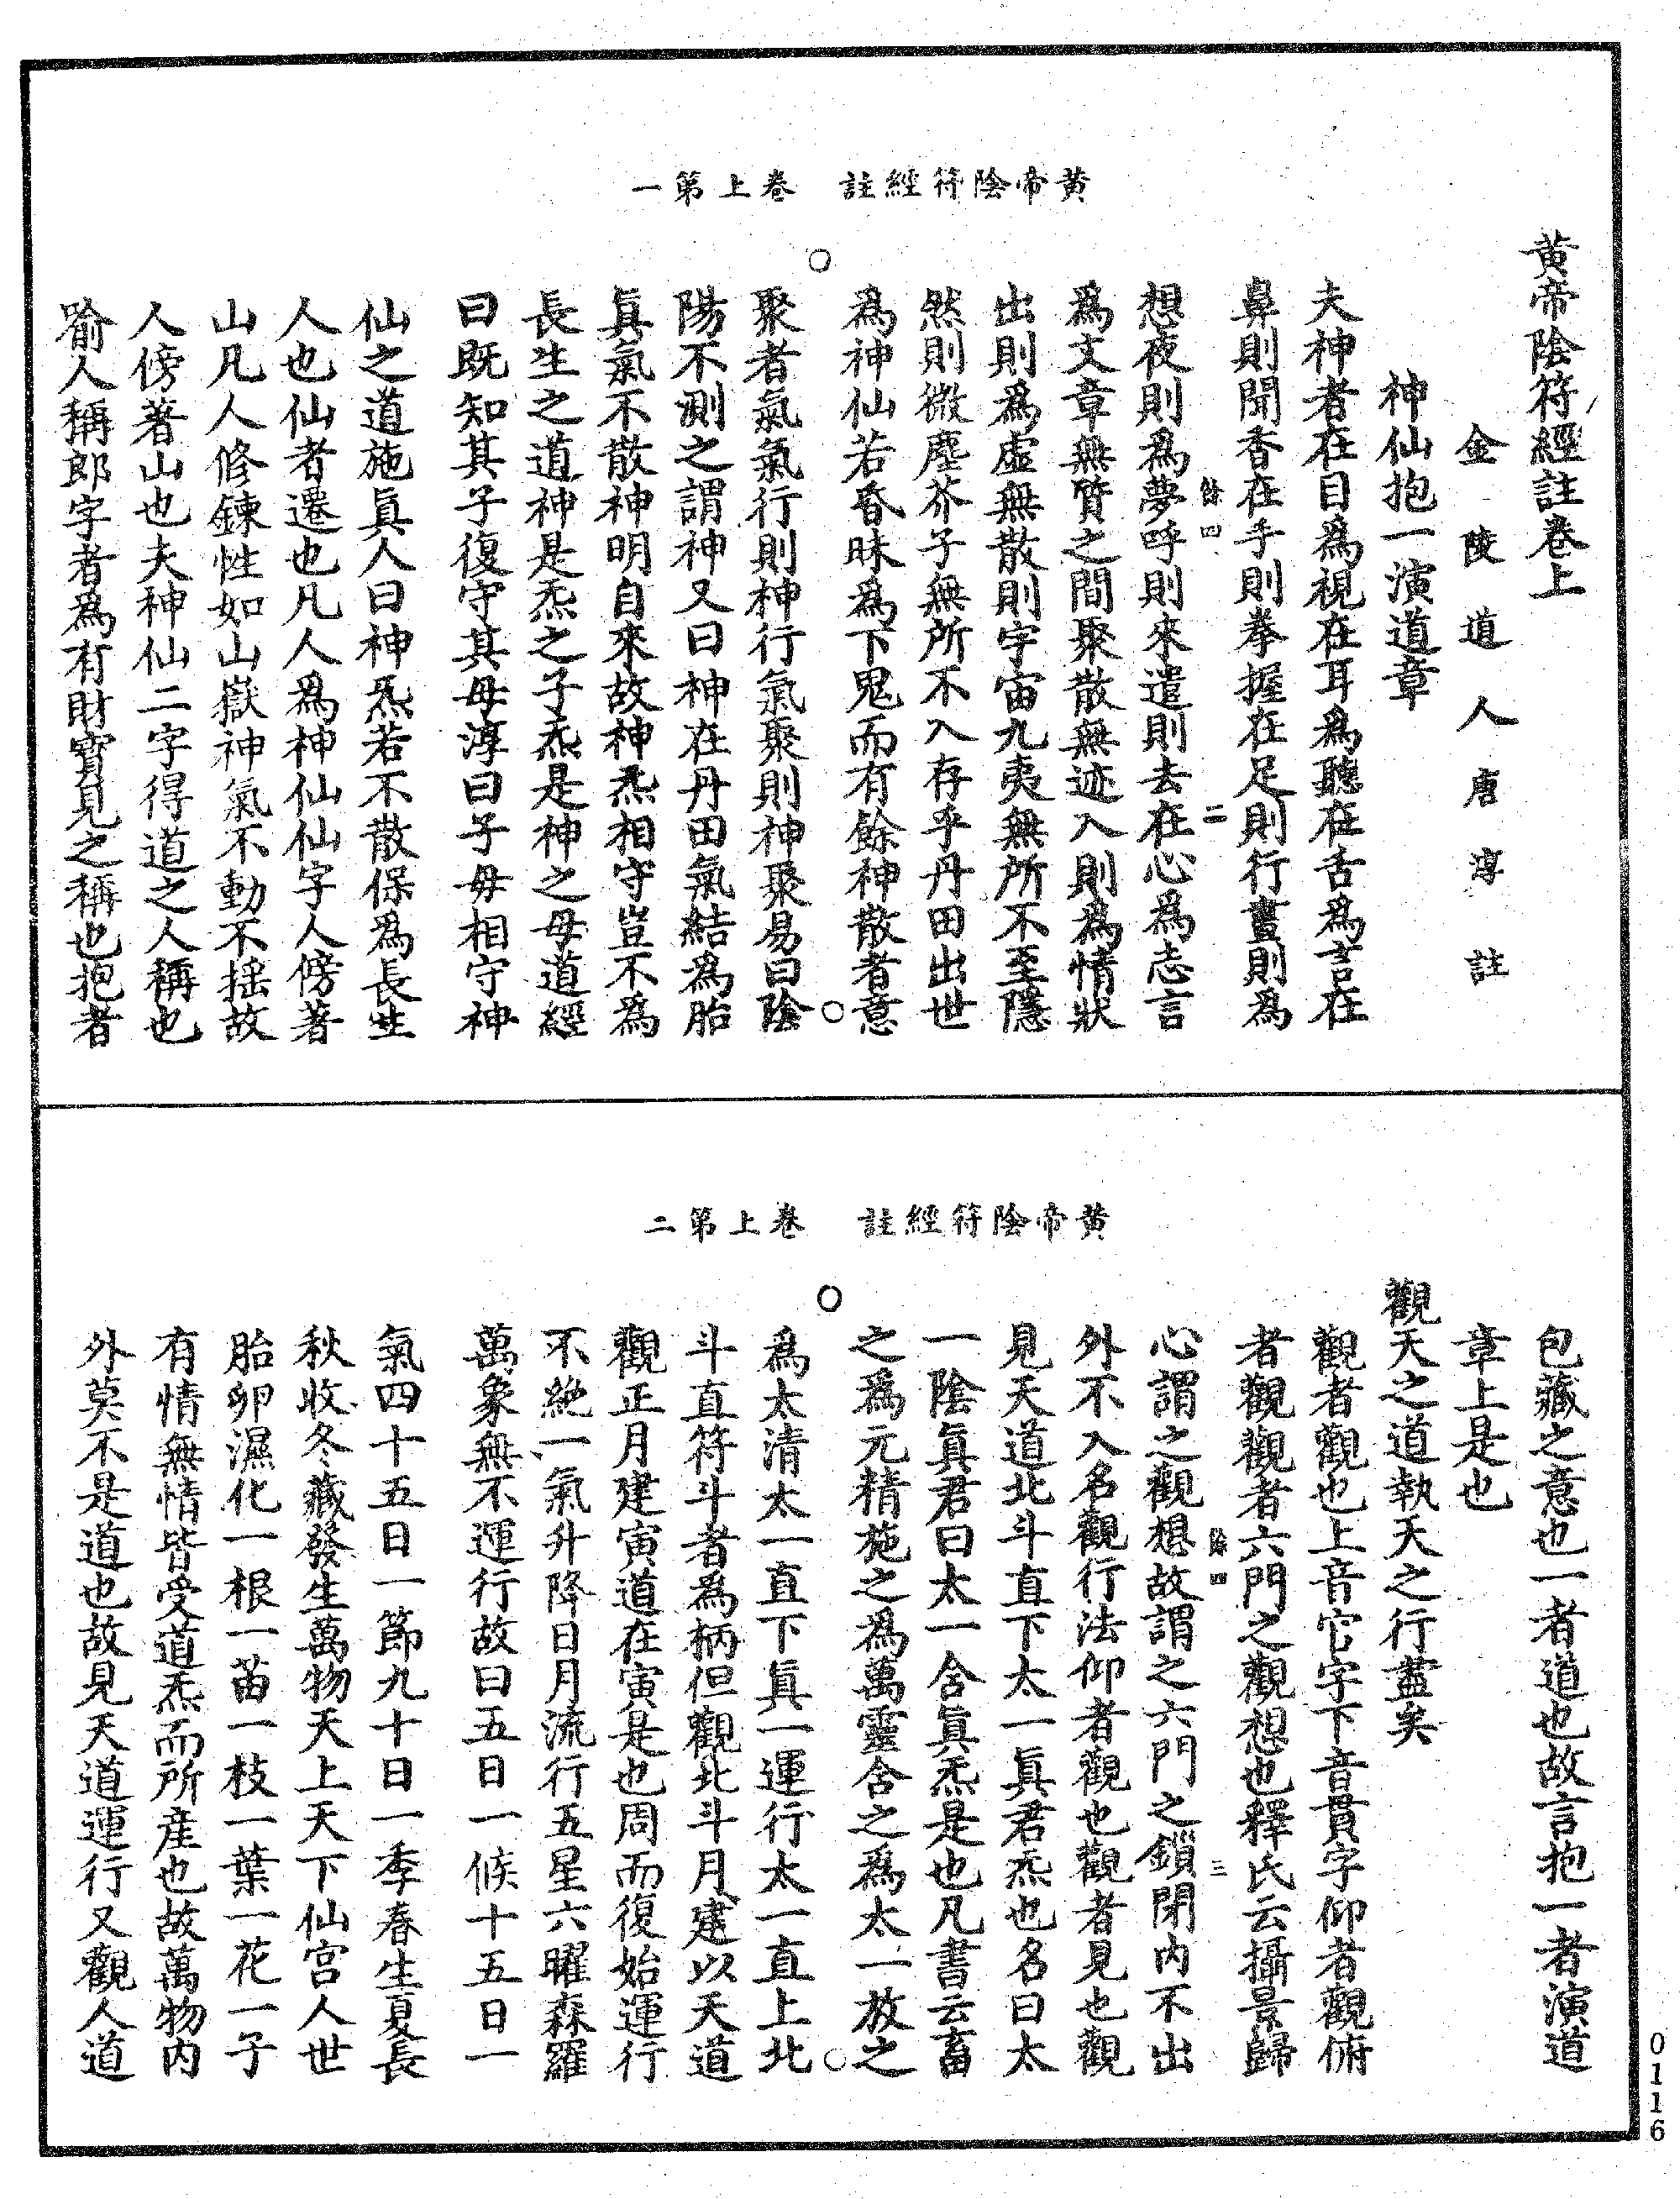 黃帝陰符經註　卷上第一
黃帝陰符經註卷上
金陵道人唐淳註
神仙抱一演道章
夫神者在目爲視在耳爲聽在舌爲言在
鼻則聞香在手則拳握在足則行晝則爲
餘四　二
想夜則爲夢呼則來遣則去在心爲志言
爲文章無質之間聚散無迹入則爲情狀
出則爲虛無散則宇宙九夷無所不至隱
然則微塵芥子無所不入存乎丹田出世
爲神仙若昏昧爲下鬼而有餘神散者意
聚者氣氣行則神行氣聚則神聚易曰陰
陽不測之謂神又曰神在丹田氣結爲胎
真氣不散神明自來故神炁相守豈不爲
長生之道神是炁之子炁是神之母道經
曰既知其子復守其母淳曰子母相守神
仙之道施真人曰神炁若不散保爲長生
人也仙者遷也凡人爲神仙仙字人傍著
山凡人修鍊性如山嶽神氣不動不搖故
人傍著山也夫神仙二字得道之人稱也
喻人稱郎字者爲有財寶見之稱也抱者
黃帝陰符經註　卷上第二
包藏之意也一者道也故言抱一者演道
章上是也
觀天之道執天之行盡矣
觀者觀也上音官字下音貫字仰者觀俯
者觀觀者六門之觀想也釋氏云攝景歸
餘四　三
心謂之觀想故謂之六門之鎖閉內不出
外不入名觀行法仰者觀也觀者見也觀
見天道北斗直下太一真君炁也名曰太
一陰真君曰太一含真炁是也凡書云畜
之爲元精施之爲萬靈含之爲太一放之
爲太清太一直下真一運行太一直上北
斗直符斗者爲柄但觀北斗月建以天道
觀正月建寅道在寅是也周而復始運行
不絕一氣升降日月流行五星六曜森羅
萬象無不運行故曰五日一候十五日一
氣四十五日一節九十日一季春生夏長
秋收冬藏發生萬物天上天下仙宮人世
胎卵濕化一根一苗一枝一葉一花一子
有情無情皆受道炁而所產也故萬物內
外莫不是道也故見天道運行又觀人道
0116